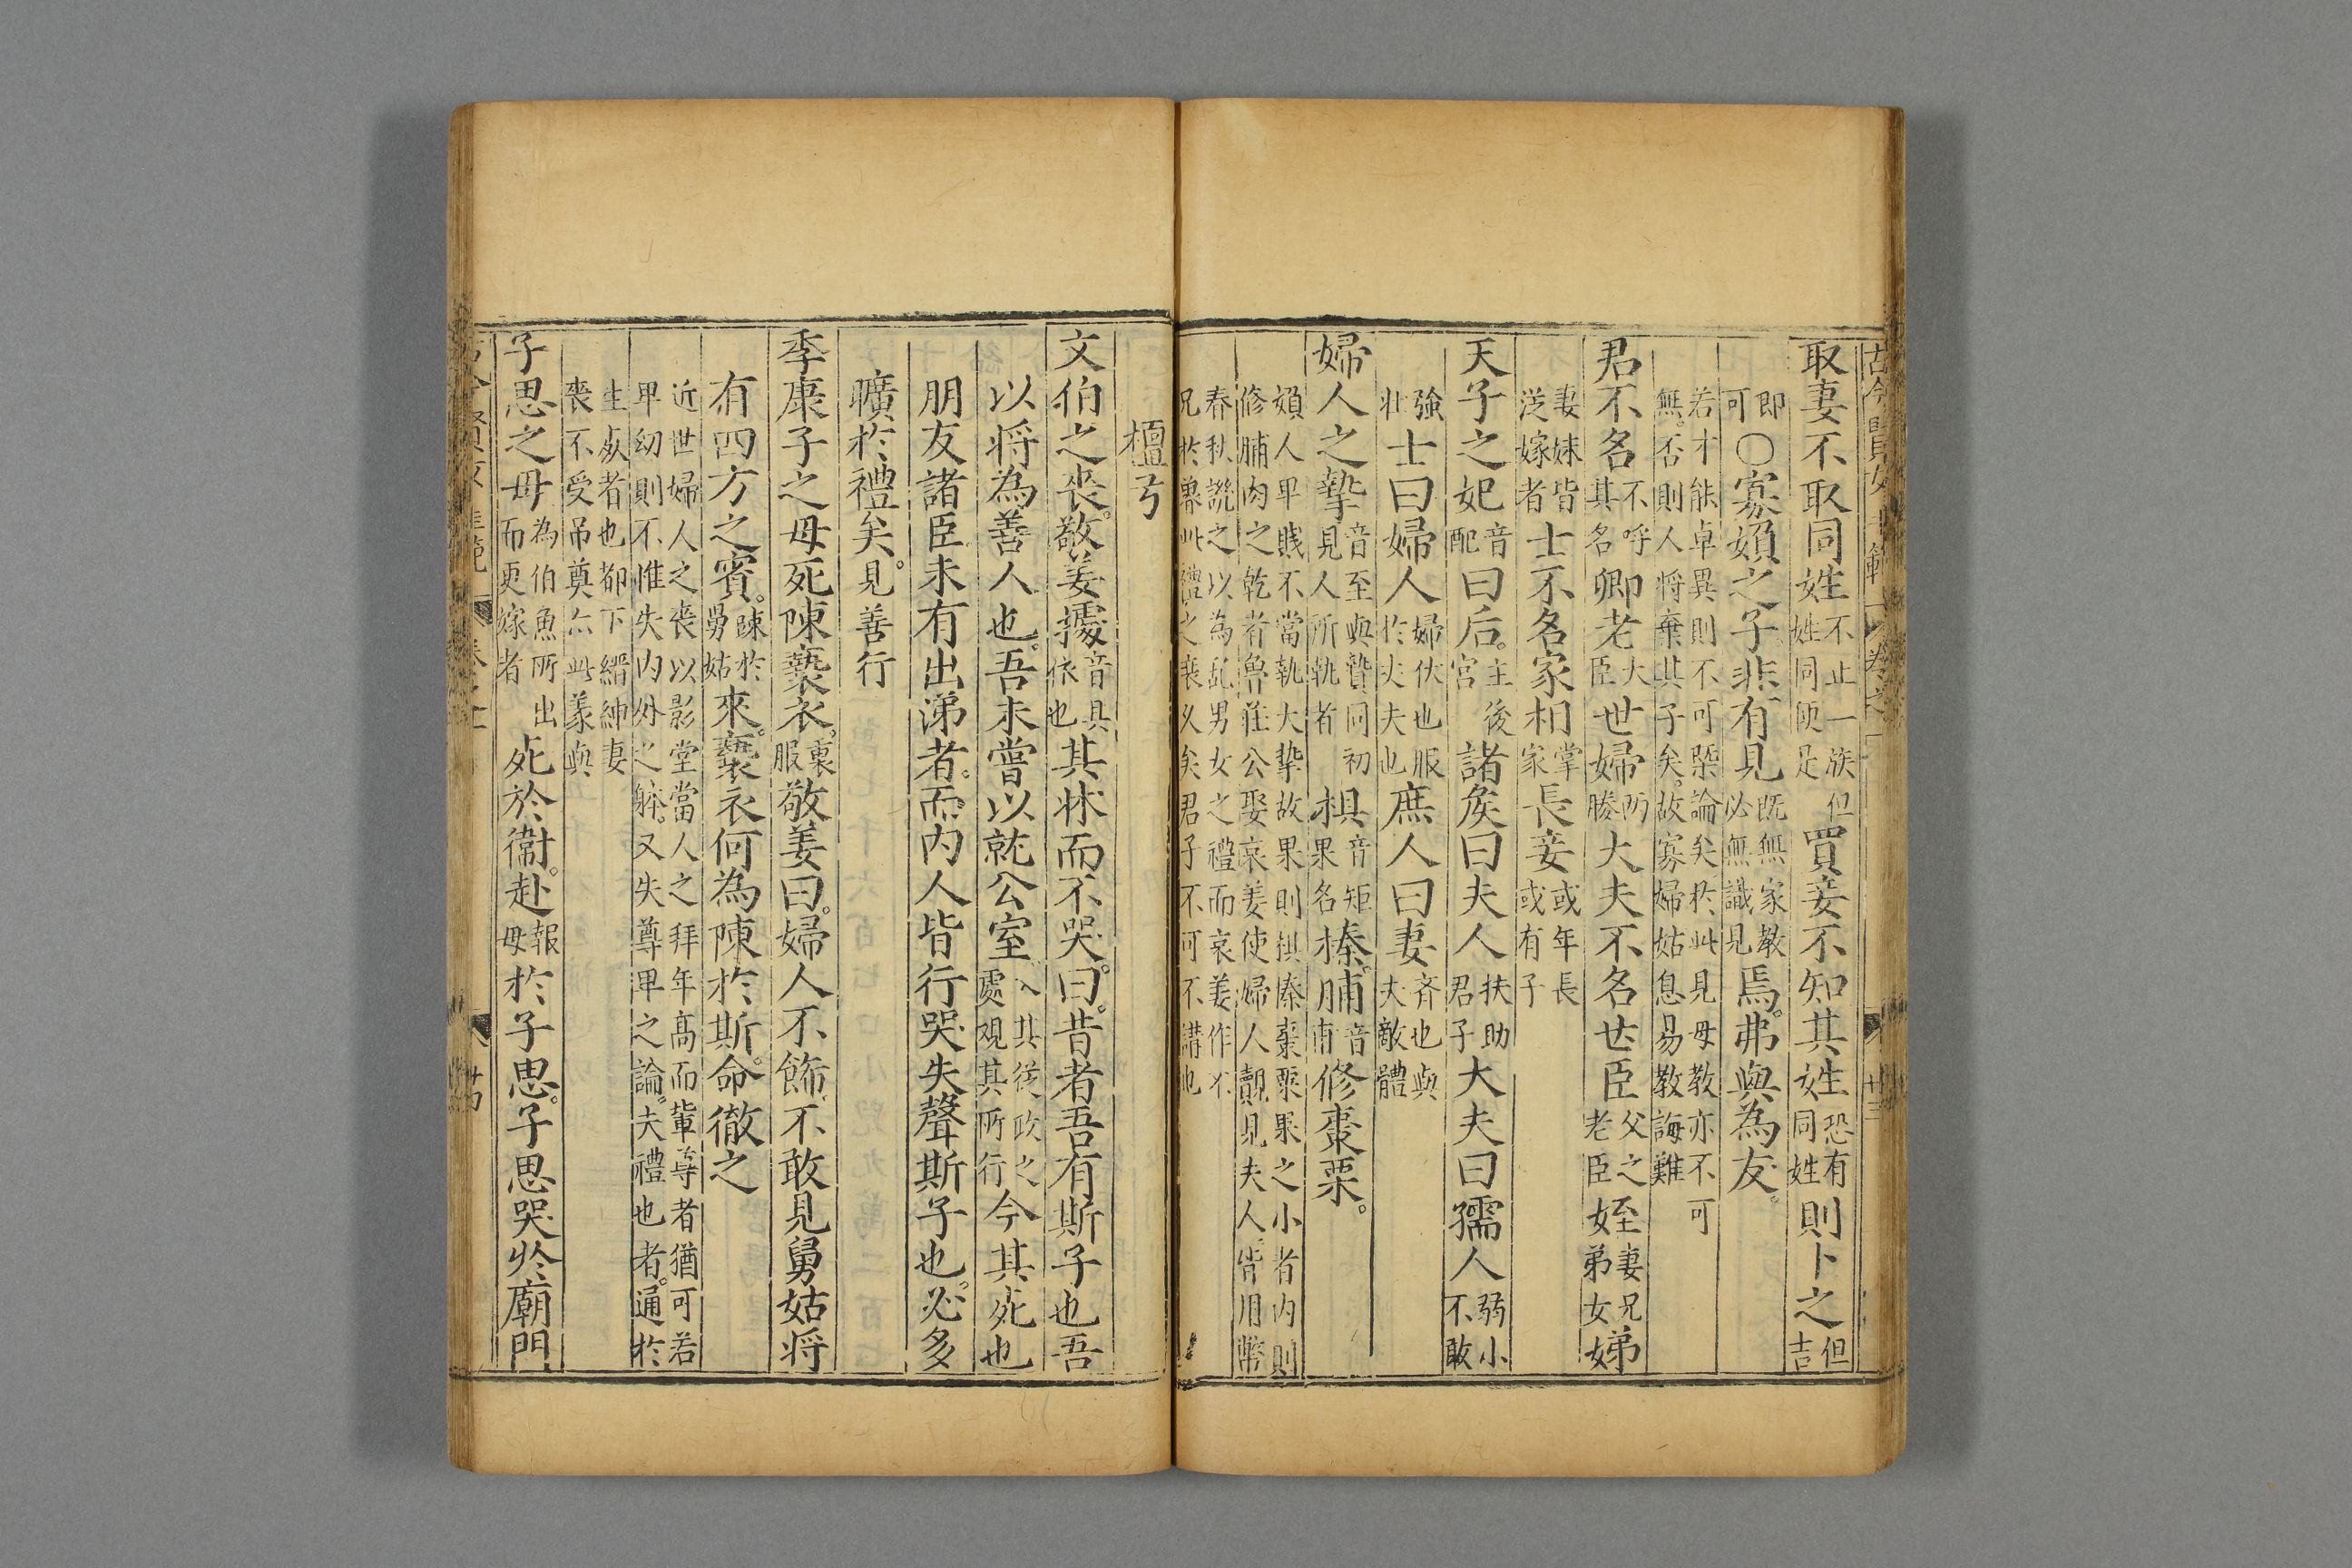 取妻不取同姓不止一族但姓同便足買妾不知其姓恐有同姓則卜之但吉
即可〇寡婦之子非有見既無家教必無識見焉弗與為友
若才能卓異則不可槩論矣於此見母教亦不可
無否則人將棄其子矣故寡婦姑息易教誨難
君不名不呼其名卿老大臣世婦所媵大夫不名世臣父之老臣姪妻兄弟女娣
妻妹皆從嫁者士不名家相掌家長妾或年長或有子
天子之妃音配曰后主後宮諸侯曰夫人扶助君子大夫曰孺人弱小不敢
強壯士曰婦人婦伏也服於夫夫也庶人曰妻齊也與夫敵體
婦人之摯音至與贄同初見人所執者椇音矩果名榛脯音甫修棗栗
婦人卑賤不當執大摯故果則椇榛棗栗果之小者內則
修脯肉之乾者魯莊公娶哀姜使婦人覿見夫人皆用幣
春秋譏之以為亂男女之禮而哀姜作不
兄於魯此禮之喪久矣君子不可不講也
檀弓
文伯之喪敬姜據音具依也其牀而不哭曰昔者吾有斯子也吾
以將為善人也吾未嘗以就公室入其從政之處觀其所行今其死也
朋友諸臣未有出涕者而內人皆行哭失聲斯子也必多
曠於禮矣見善行
季康子之母死陳褻衣裏服敬姜曰婦人不飾不敢見舅姑將
有四方之賓陳於舅姑來褻衣何為陳於斯命徹之
近世婦人之喪以影堂當人之拜年高而輩尊者猶可若
卑幼則不惟失內外之躰又失尊卑之論夫禮也者通於
生處者也都下縉紳妻
喪不受吊奠亦此義與
子思之母為伯魚所出而更嫁者死於衛赴報母於子思子思哭於廟門